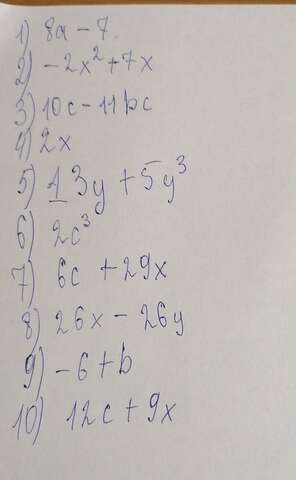 1) 8a - 7.
2) -2x² + 7x
3) 10c - 11bc
4) 2x
5) 13y + 5y³
6) 2c³
7) 6c + 29x
8) 26x - 26y
9) -6 + b
10) 12c + 9x